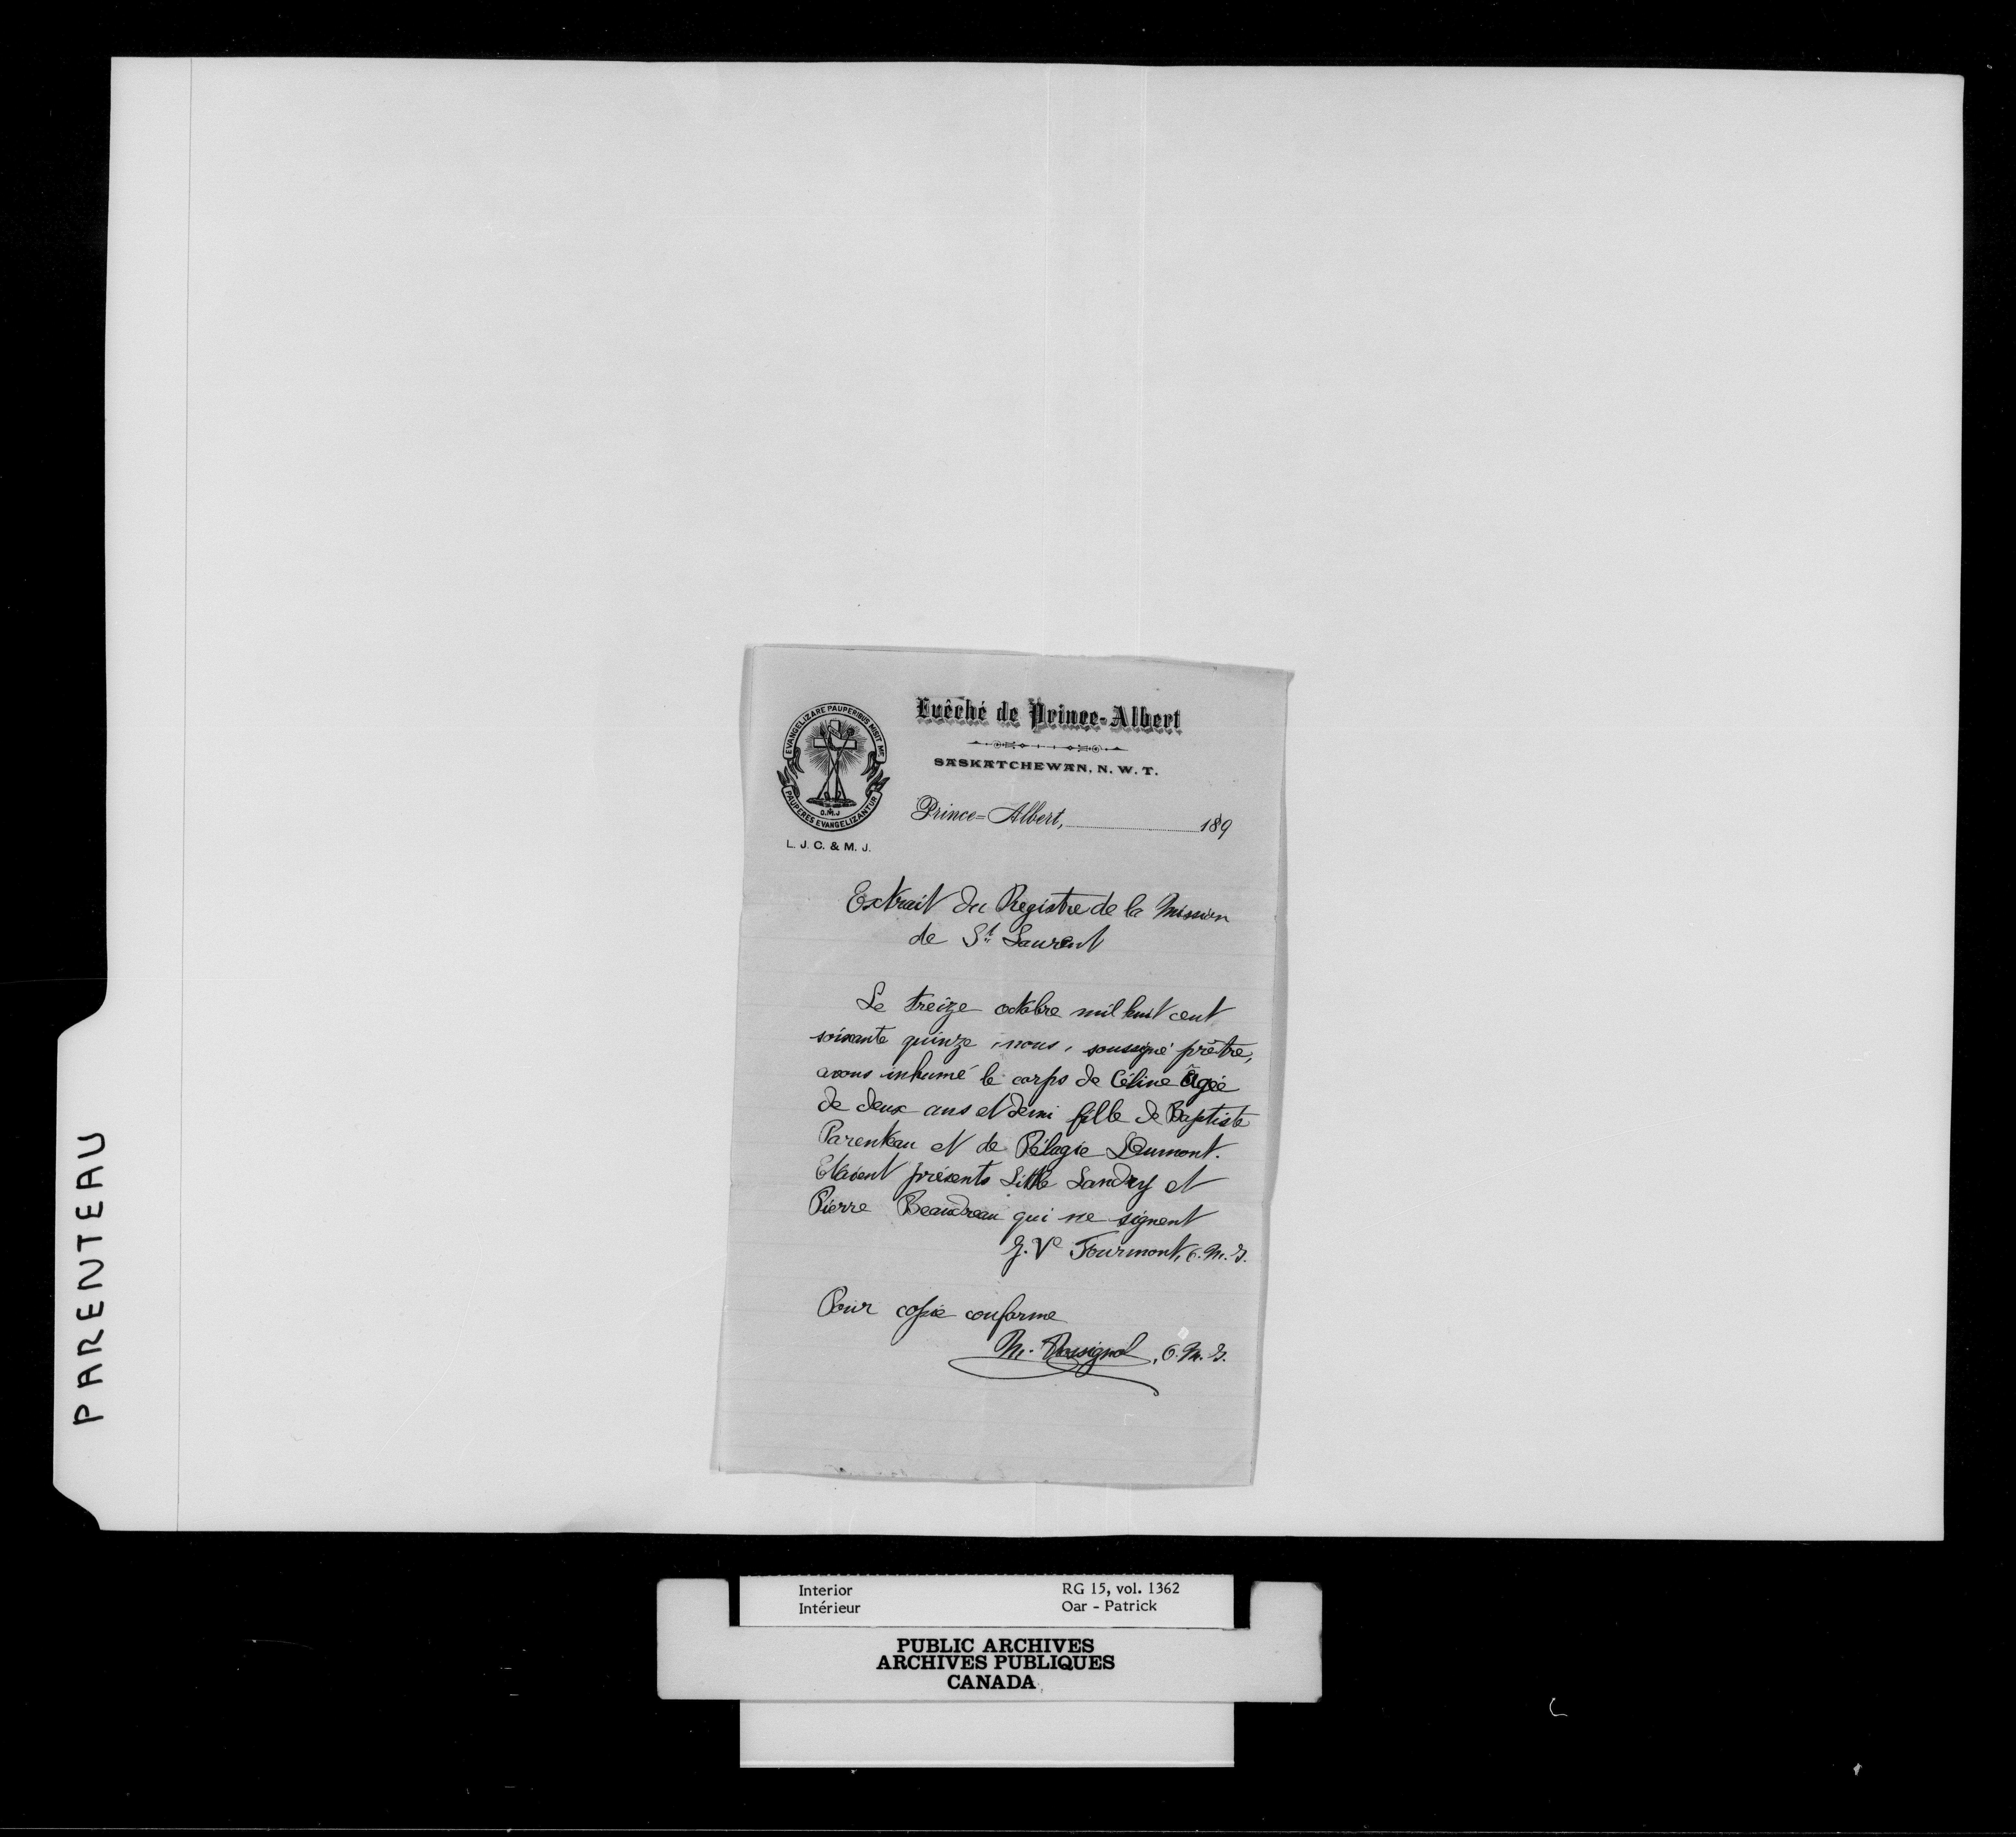 PARENTEAU
Evêché de Prince-Albert
SASKATCHEWAN, N. W. T.
EVANGELIZARE PAUPERIBUS MISIT ME
O.M.J
PAUPERES EVANGELIZANTUR
L. J. C. & M. J.
Prince=Albert, 189
Extrait du Registre de la Mission
de St Laurent
Le treize octobre mil huit cent
soixante quinze, nous, soussigné prêtre,
avons inhumé le corps de Céline âgée
de deux ans et demi fille de Baptiste
Parenteau et de Pélagie Dumont.
Etaient présents Little Landry et
Pierre Beaudreau qui ne signent
Fourmont, O. M. I.
Pour copie conforme
M. Rossignol, O. M. I.
Interior RG 15, vol. 1362
Intérieur Oar - Patrick
PUBLIC ARCHIVES
ARCHIVES PUBLIQUES
CANADA